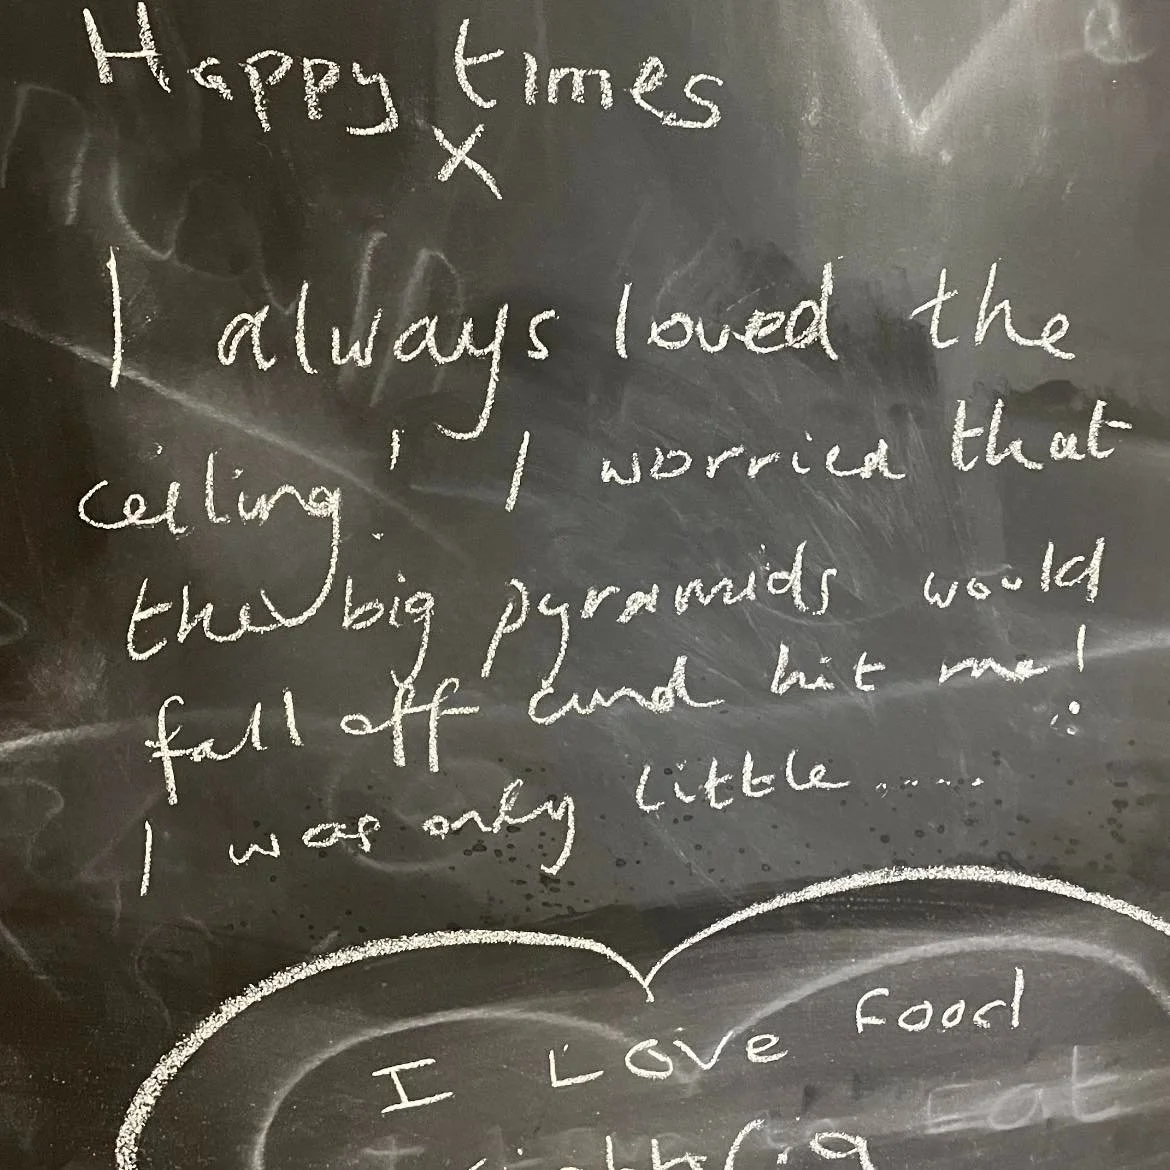 Happy times
x
I always loved the
ceiling! I worried that
the big pyramids would
fall off and hit me!
I was only little......
I Love Food